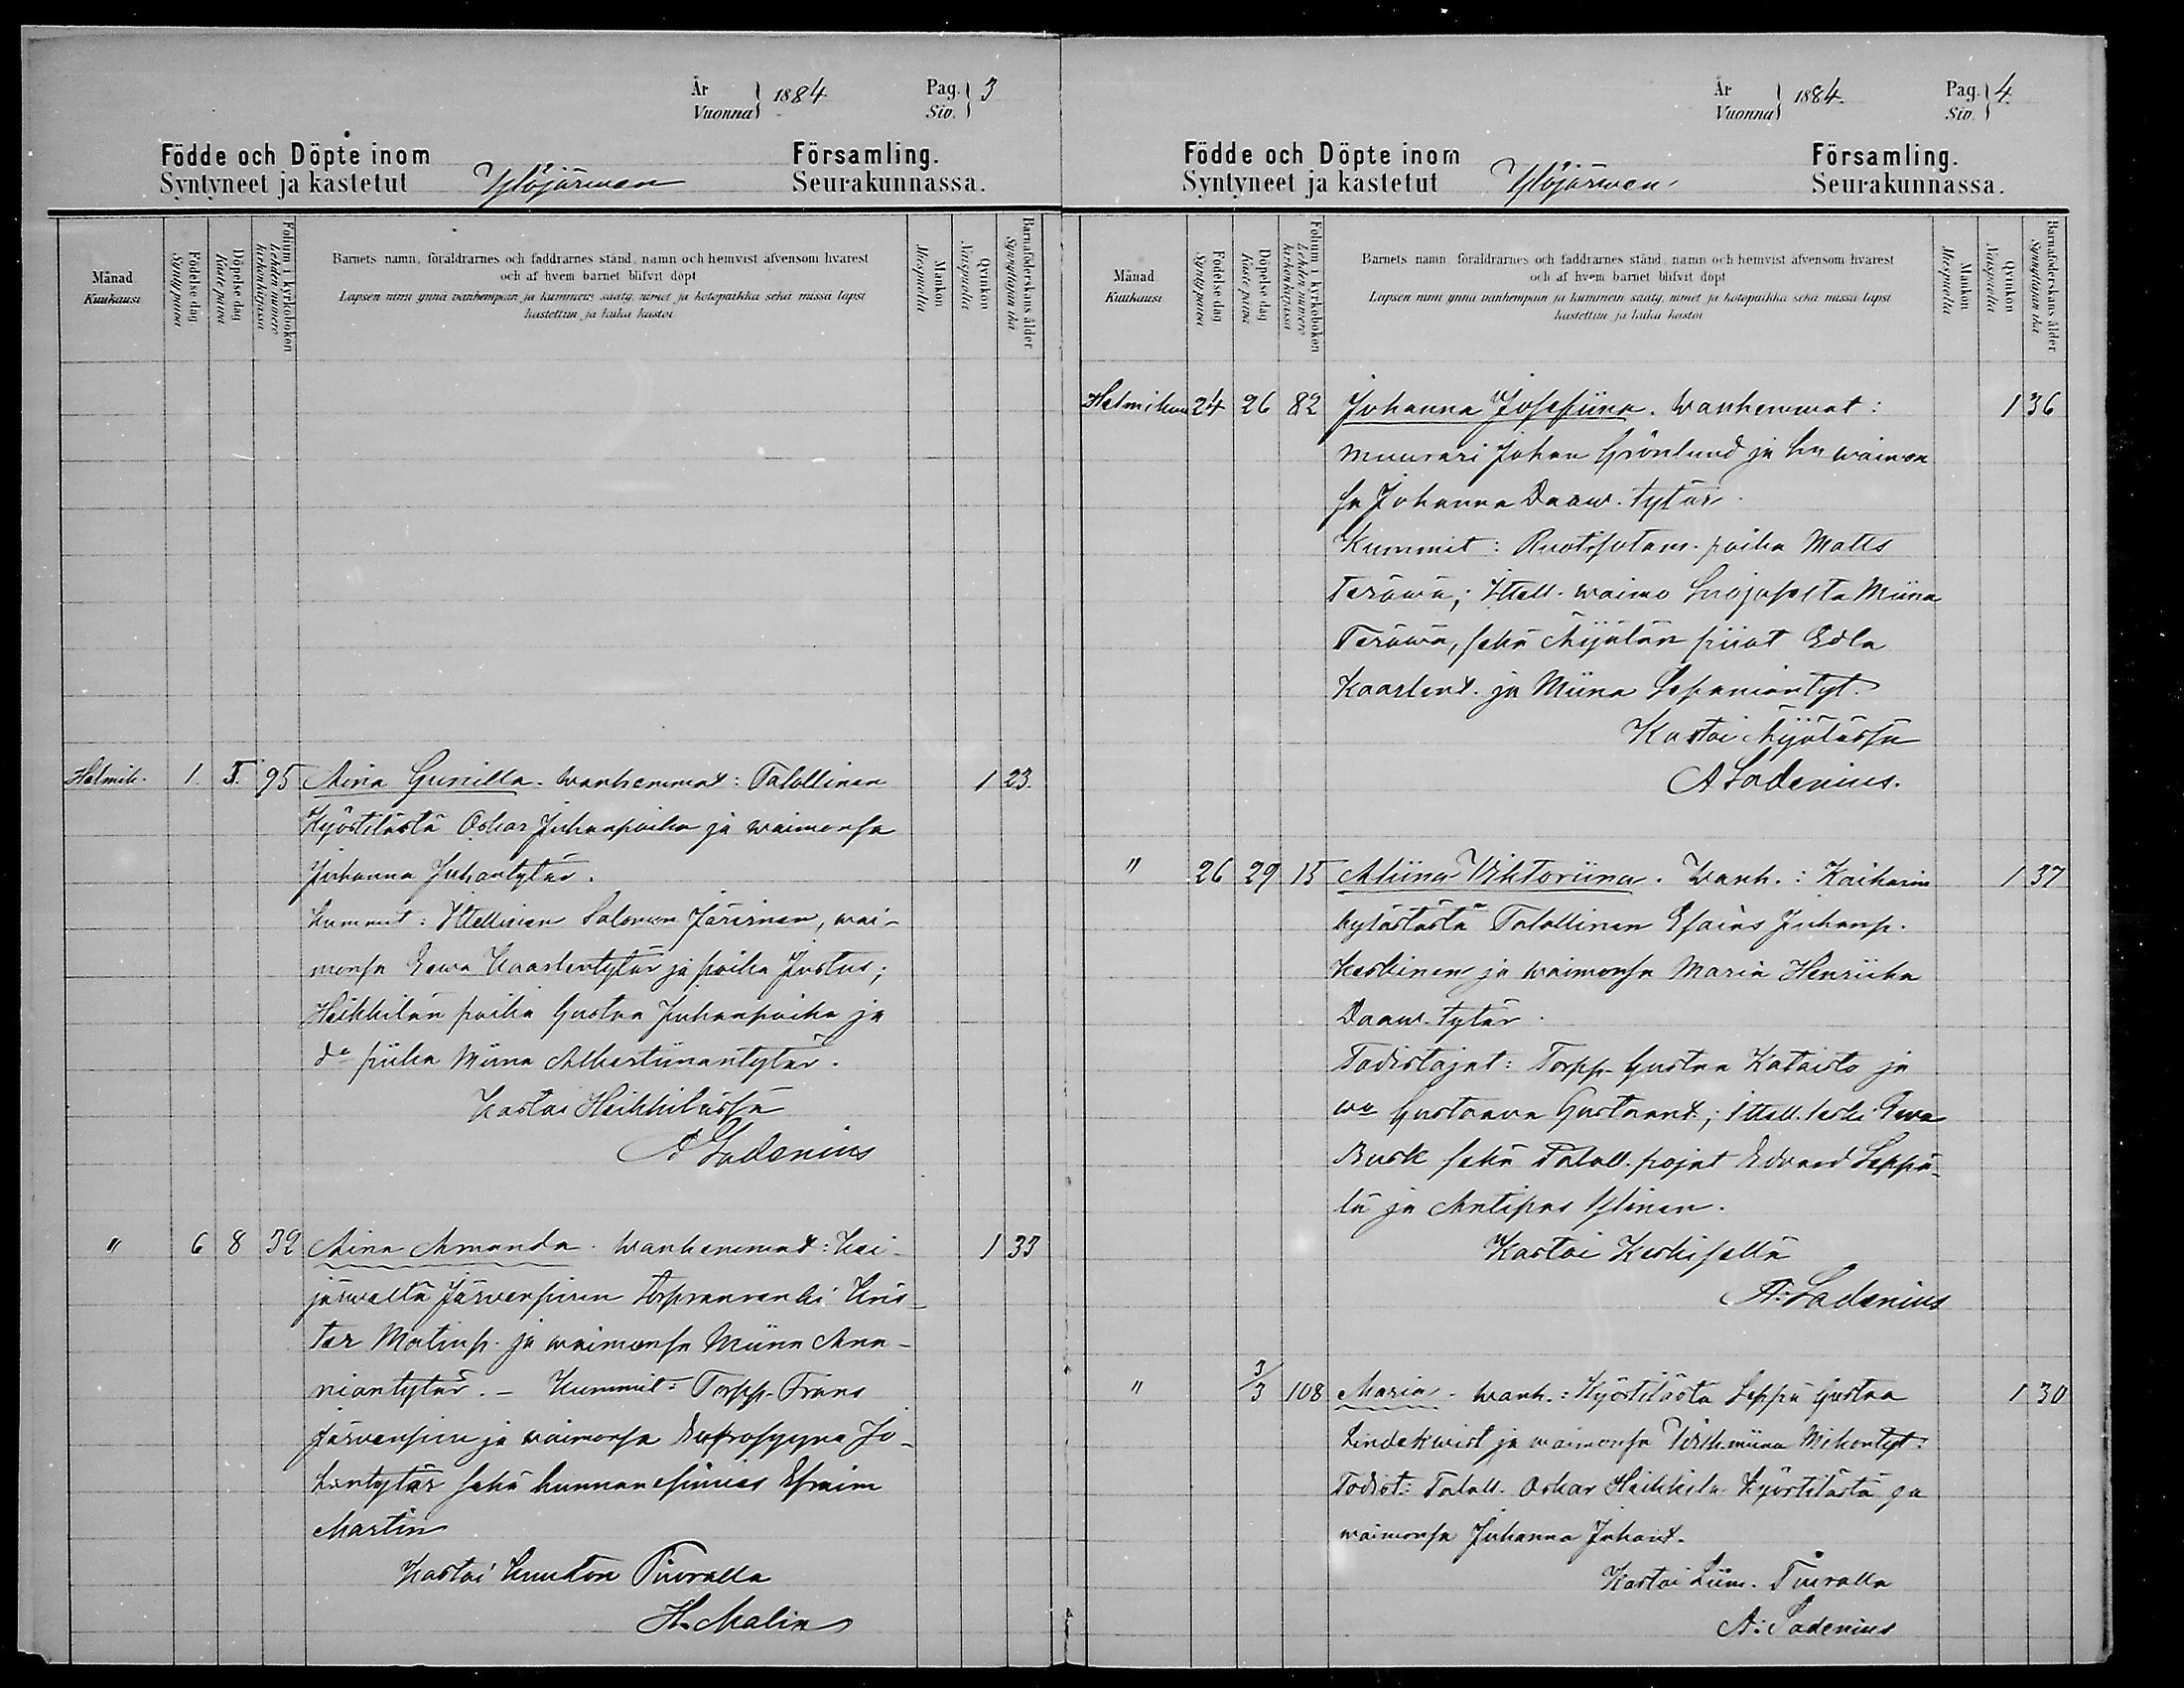 År
Vuonna } 1884
Pag.
Siv. } 3
Födde och Döpte inom Församling.
Syntyneet ja kastetut Ylöjärwen Seurakunnassa.
Månad
Kuukausi
Födelse dag
Synty päivä
Döpelse dag
Kaste päivä
Folium i kyrkoboken
Lehden numero
kirkonkirjassa
Barnets namn, föräldrarnes och faddrarnes stånd, namn och hemvist äfvensom hvarest
och af hvem barnet blifvit döpt
Lapsen nimi ynnä vanhempain ja kummein sääty, nimet ja kotopaikka sekä missä lapsi
kastettiin ja kuka kastoi
Mankön
Miespuolia
Qvinkön
Naispuolia
Barnaföderskans ålder
Synnyttäjän ikä
Helmik. 1. 5. 95 Aina Gunilla. Wanhemmat: Talollinen 1 23.
Kyöstilästä Oskar Juhanpoika ja waimonsa
Juhanna Juhantytär.
Kummit: Ittellinen Salomon Järvinen, wai-
monsa Eewa Kaarlentytär ja poika Justus;
Heikkilän poika Gustaa Juhanpoika ja
do piika Miina Albertiinantytär.
Kastoi Heikkilässä
A Ladenius
" 6 8 32 Aina Amanda. Wanhemmat: Kei- 1 33
järweltä Järwensiwu torpparinrenki Kris-
ter Matinp. ja waimonsa Miina Ana-
niantytär. - Kummit: Torpp. Frans
Järvensivu ja waimonsa Eufrosyyna Jo-
hantytär sekä kunnan esimies Efraim
Martin
Kastoi Kunkon Tuvalla
H. Malin
År
Vuonna } 1884.
Pag.
Siv. } 4.
Födde och Döpte inom Församling.
Syntyneet ja kastetut Ylöjärwen Seurakunnassa.
Månad
Kuukausi
Födelse dag
Synty päivä
Döpelse dag
Kaste päivä
Folium i kyrkoboken
Lehden numero
kirkonkirjassa
Barnets namn, föräldrarnes och faddrarnes stånd, namn och hemvist äfvensom hvarest
och af hvem barnet blifvit döpt
Lapsen nimi ynnä vanhempain ja kummein sääty, nimet ja kotopaikka sekä missä lapsi
kastettiin ja kuka kastoi
Mankön
Miespuolia
Qvinkön
Naispuolia
Barnaföderskans ålder
Synnyttäjän ikä
Helmikuu 24 26 82 Johanna Josefiina. Wanhemmat: 1 36
Muurari Johan Grönlund ja hn waimon
sa Johanna Daaw. tytär.
Kummit: Ruotisotam. poika Matts
Teräwä; Ittell. waimo Miina
Teräwä, sekä Äijälän piiat Edla
Kaarlent. ja Miina
Kastoi Äijälässä
A Ladenius.
" 26 29 15 Miina Viktoriina. Wanh.: Kaiharin 1 37
kylästästä Talollinen Esaias Juhanp.
Keskinen ja waimonsa Maria Henriika
Daaw. tytär.
Todistajat: Torpp. Gustaa Kataisto ja
wo Gustaava Gustaant.; Ittell. leski Eewa
Busk sekä Taloll. pojat Edvard Seppä-
lä ja Antipas Ylinen.
Kastoi Keskisellä
A: Ladenius
" 3/3 108 Maria. Wanh.: Kyöstilästä Seppä Gustaa 1 30
Lindekwist ja waimonsa Vilhelmiina Mikontyt.
Todist: Taloll. Oskar Heikkilä Kyöstilästä ja
waimonsa Juhanna Juhant.
Kastoi Tuvalla
A: Ladenius